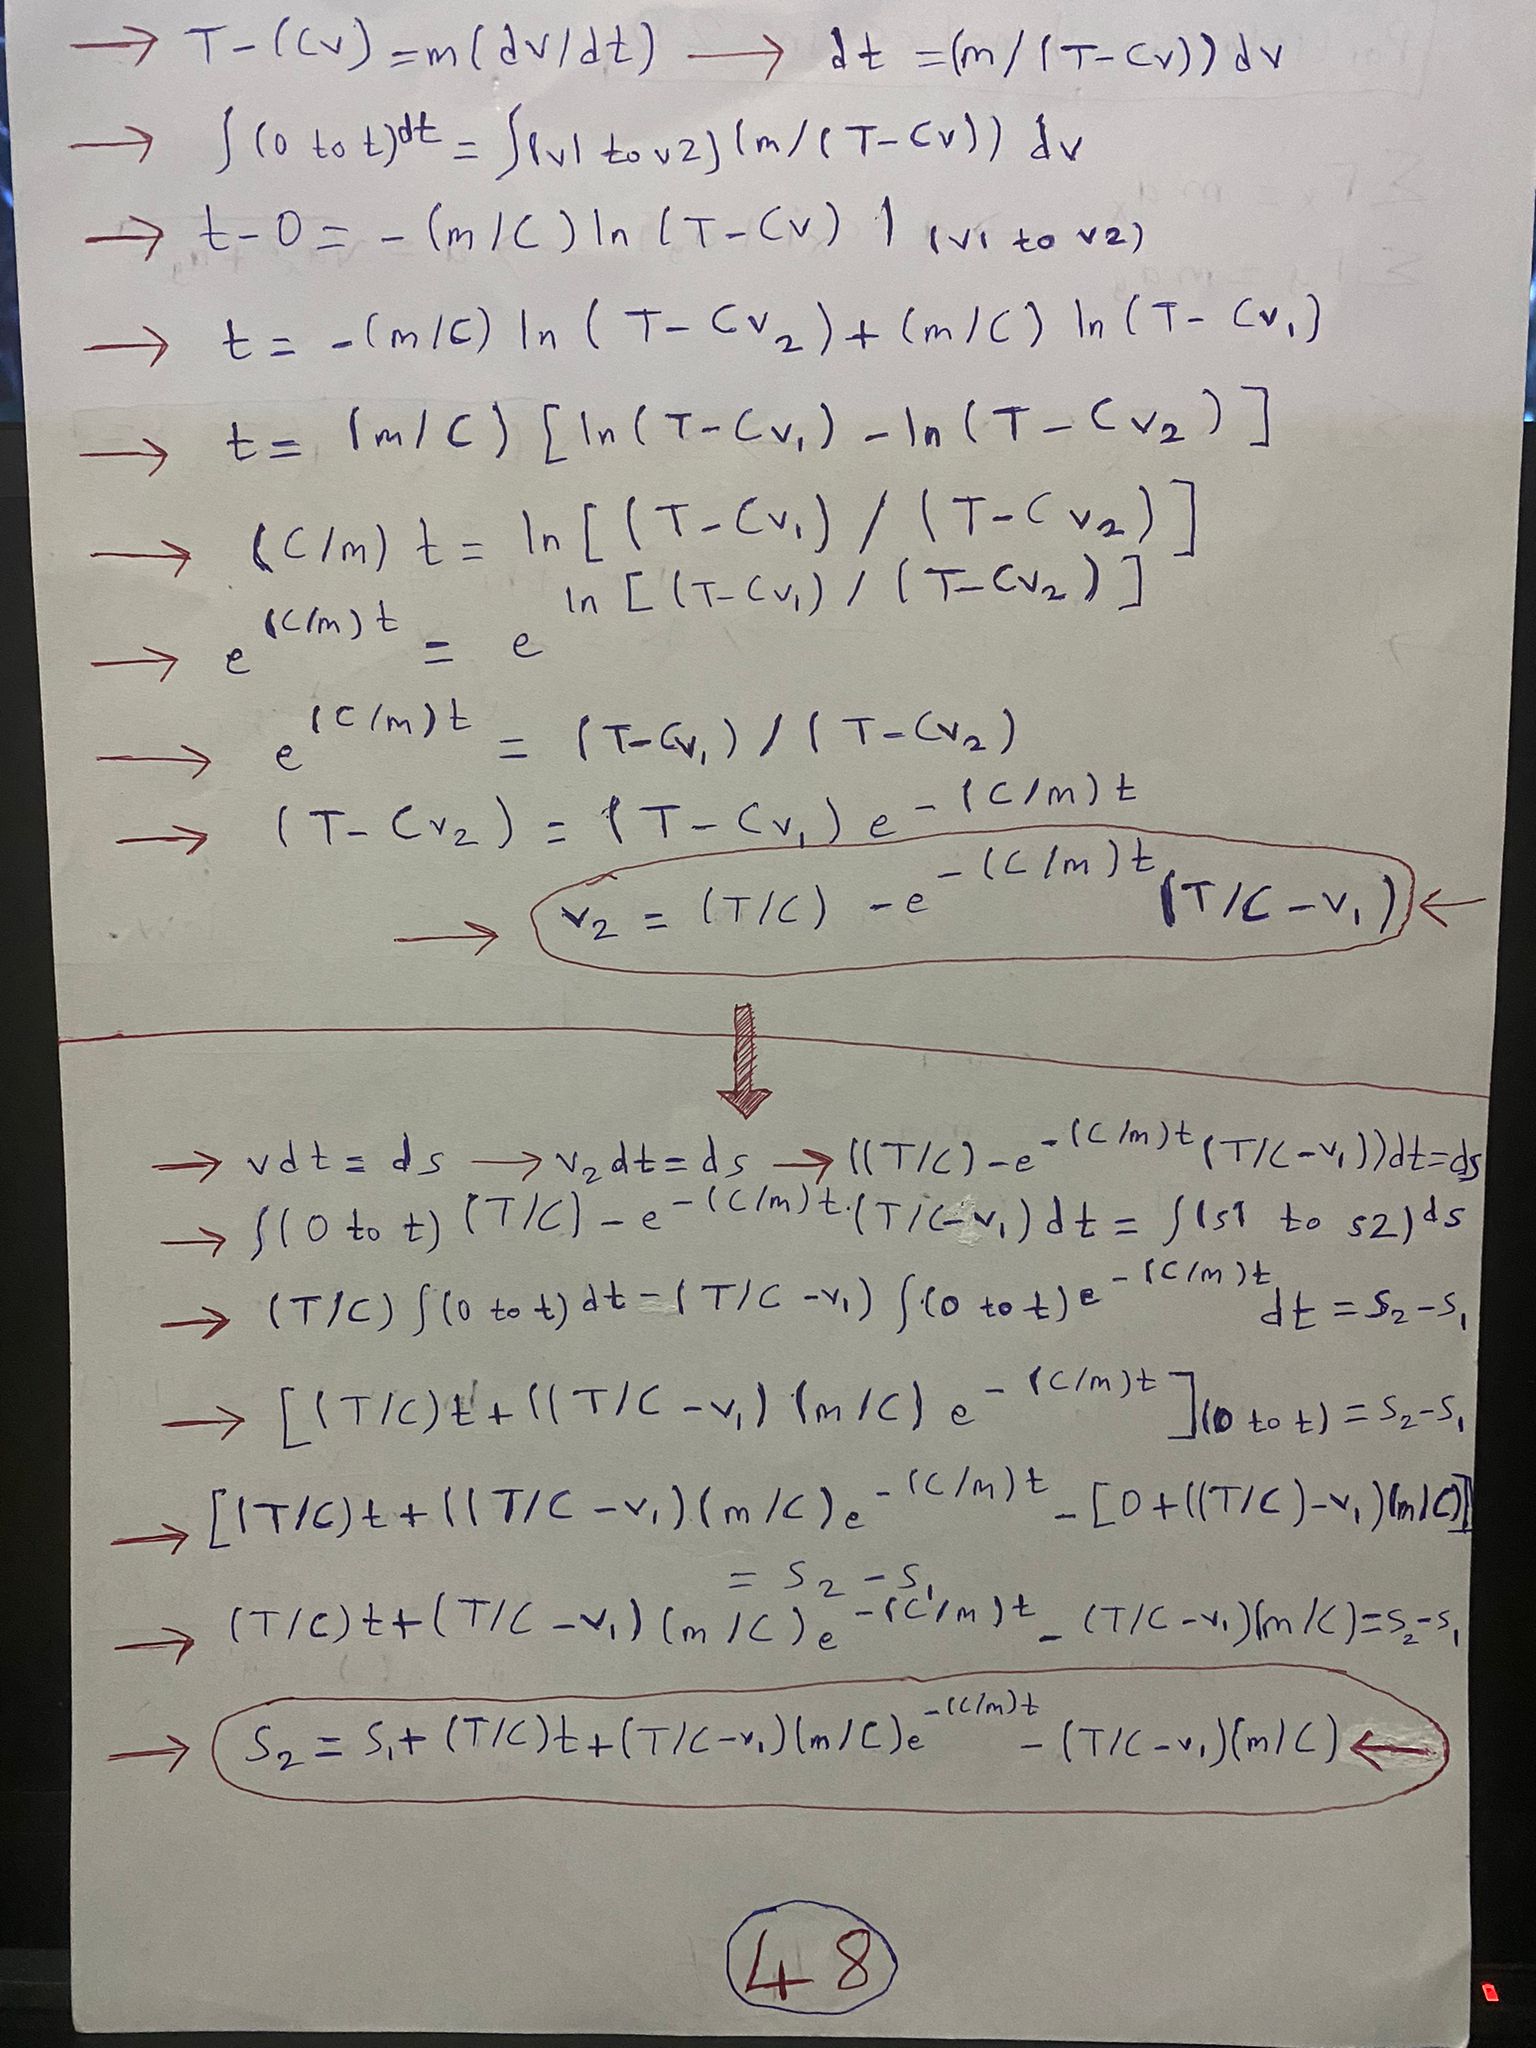 → T-(Cv) = m(dv/dt) → dt = (m/(T-Cv)) dv
→ ∫(0 to t)dt = ∫(v1 to v2)(m/(T-Cv)) dv
→ t-0 = -(m/C) ln (T-Cv) | (v1 to v2)
→ t = -(m/C) ln (T-Cv₂) + (m/C) ln (T-Cv₁)
→ t = (m/C) [ln(T-Cv₁) - ln(T-Cv₂)]
→ (C/m) t = ln [(T-Cv₁) / (T-Cv₂)]
→ e^(C/m)t = e^ln [(T-Cv₁) / (T-Cv₂)]
→ e^(C/m)t = (T-Cv₁) / (T-Cv₂)
→ (T-Cv₂) = (T-Cv₁) e^-(C/m)t
→ v₂ = (T/C) - e^-(C/m)t (T/C-v₁) ←
→ vdt = ds → v₂dt = ds → ((T/C)-e^-(C/m)t (T/C-v₁))dt = ds
→ ∫(0 to t) (T/C) - e^-(C/m)t.(T/C-v₁) dt = ∫(s1 to s2) ds
→ (T/C) ∫(0 to t) dt - (T/C-v₁) ∫(0 to t) e^-(C/m)t dt = s₂-s₁
→ [(T/C)t + ((T/C-v₁) (m/C) e^-(C/m)t](0 to t) = s₂-s₁
→ [(T/C)t + ((T/C-v₁)(m/C)e^-(C/m)t - [0+((T/C)-v₁)(m/C)]]
= s₂-s₁
→ (T/C)t + (T/C-v₁)(m/C)e^-(C/m)t - (T/C-v₁)(m/C) = s₂-s₁
→ s₂ = s₁ + (T/C)t + (T/C-v₁)(m/C)e^-(C/m)t - (T/C-v₁)(m/C) ←
48